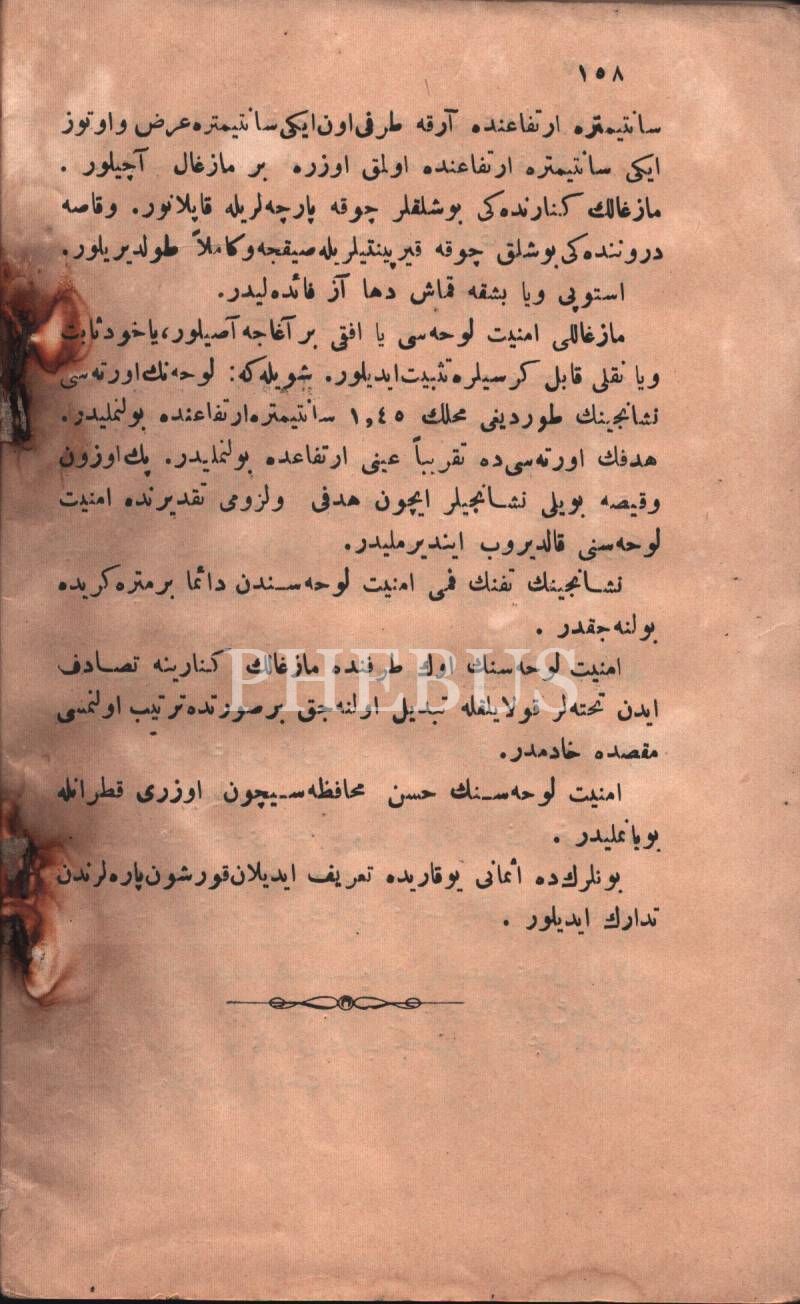 ١٥٨
سانتیمتره ارتفاعنده آرقه طرفی اون ایکی سانتیمتره عرض و اوتوز
ایکی سانتیمتره ارتفاعنده اولمق اوزره بر مازغال آچیلور .
مازغالك كنارنده‌كی بوشلقلر چوقه پارچه‌لریله قاپلانور. و قاصه
دروننده‌كی بوشلق چوقه قیرپینتیلریله صیقجه و كاملاً طولدیریلور.
استوپی ویا بشقه قماش دها آز فائده‌لیدر.
مازغاللی امنیت لوحه‌سی یا افقی بر آغاجه آصیلور، یاخود ثابت
ویا نقلی قابل كرسیلره تثبیت ایدیلور. شویله‌كه: لوحه‌نك اورته‌سی
نشانجینك طوردینی محلك ١,٤٥ سانتیمتره ارتفاعنده بولنملیدر.
هدفك اورته‌سی ده تقریباً عینی ارتفاعده بولنملیدر. پك اوزون
وقیصه بویلی نشانجیلر ایچون هدفی ولزومی تقدیرنده امنیت
لوحه‌سنی قالدیروب ایندیرملیدر.
نشانجینك تفنك فمی امنیت لوحه‌سندن دائما بر متره كریده
بولنه‌جقدر .
امنیت لوحه‌سنك اوك طرفنده مازغالك كنارینه تصادف
ایدن تخته‌لر قولایلقله تبدیل اولنه‌جق بر صورتده ترتیب اولنمسی
مقصده خادمدر.
امنیت لوحه‌سنك حسن محافظه‌سیچون اوزری قطرانله
بویانملیدر .
بونلرك ده أثمانی یوقاریده تعریف ایدیلان قورشون پاره‌لرندن
تدارك ایدیلور .
PHEBUS